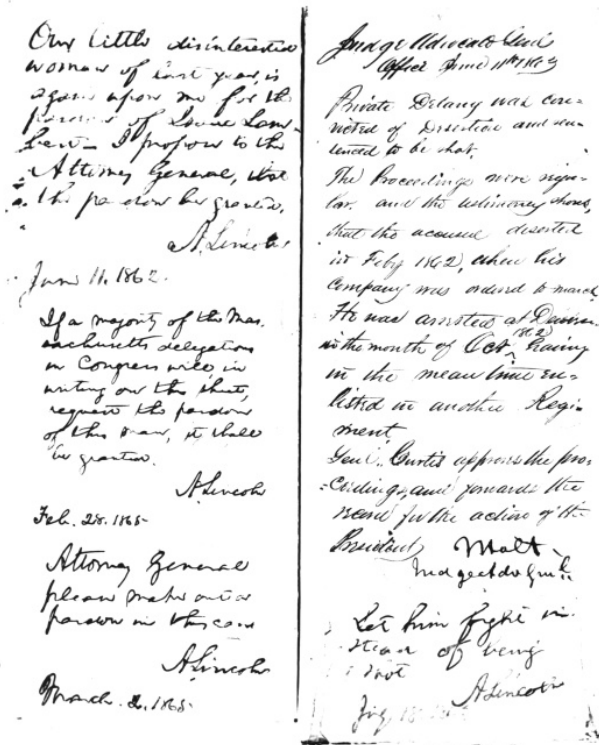 Our little disinterested
woman of last year, is
again upon me for the
pardon of Louis Lam-
bert - I propose to the
Attorney General, that
the pardon be granted.
A. Lincoln
June 11. 1862.
If a majority of the Mas-
sachusetts delegation
in Congress will, in
writing on this sheet,
request the pardon
of this man, it shall
be granted.
A. Lincoln
Feb. 28. 1865-
Attorney General
please make out a
pardon in this case
A. Lincoln
March 2. 1865-
Judge Advocate Genl
Office June 11th 1863
Private Delany was con-
victed of Desertion and sen-
tenced to be shot.
The Proceedings were regu-
lar, and the testimony shows,
that the accused deserted
in Feby 1862, when his
Company was ordered to march
He was arrested at
in the month of Oct 1862, having
in the mean time en-
listed in another Regi-
ment.
Genl. Curtis approves the pro-
ceedings, and forwards the
record for the action of the
President,
Holt
Judge Adv Genl.
Let him fight in-
stead of being
shot
A. Lincoln